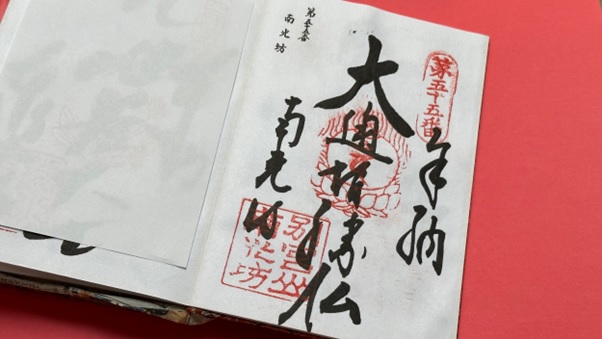 第五十五番
奉納
大通智勝仏
南光坊
別宮山
南光坊
第五十五番
南光坊